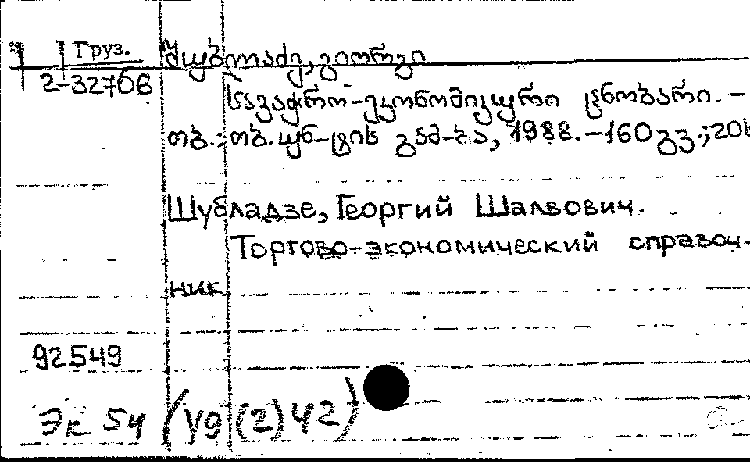 Груз. შუბლაძე, გიორგი
2-32706 სავაჭრო-ეკონომიკური ცნობარი. –
თბ.: თბ. უნ-ტის გამ-ბა, 1988. – 160 გვ.; 20
Шубладзе, Георгий Шалвович.
Торгово-экономический справоч-
ник
92549
Эк 54 (У9(2)42)